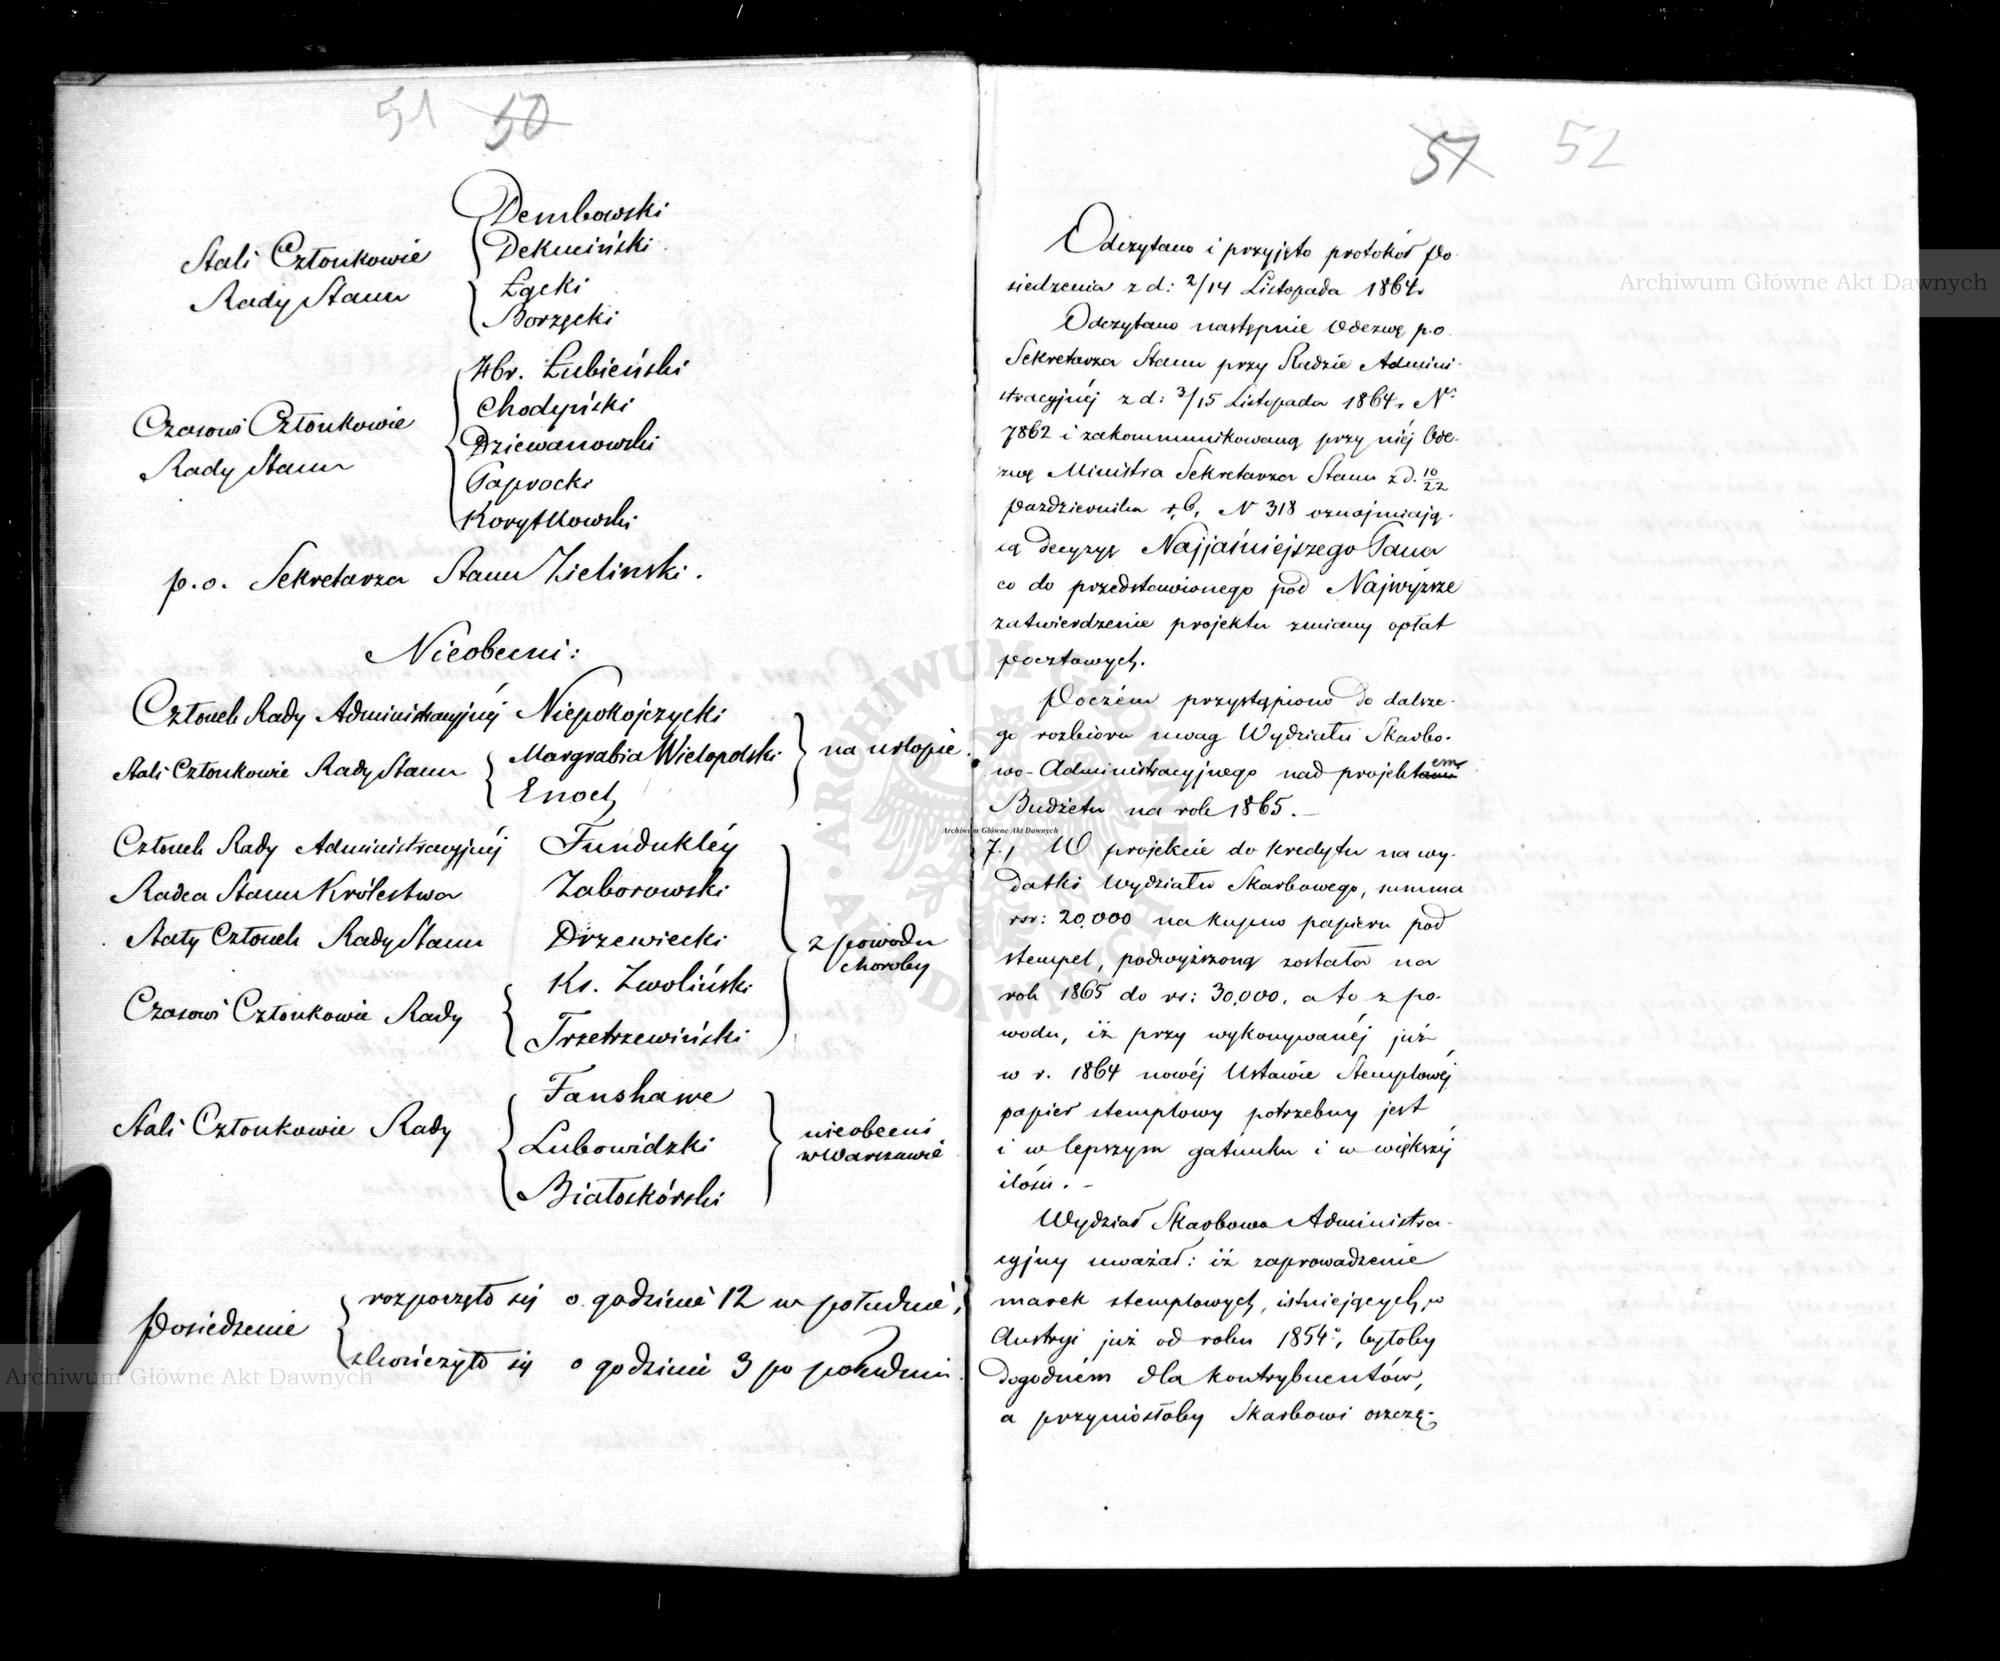 51 50
Dembowski
Stali Członkowie
Rady Stanu
Dekuciński
Łącki
Borzęcki
Czasowi Członkowie
Rady Stanu
Hbr. Łubieński
Chodyński
Dziewanowski
Paprocki
Korytkowski
p.o. Sekretarza Stanu Zielinski.
Nieobecni:
Członek Rady Administracyjnéj Niepokojczycki
Stali Członkowie Rady Stanu Margrabia Wielopolski
Enoch
na urlopie.
Członek Rady Administracyjnéj Fundukléy
Radca Stanu Królestwa Zaborowski
Stały Członek Rady Stanu Drzewiecki
Czasowi Członkowie Rady Ks. Zwoliński
Trzetrzewiński
z powodu
choroby
Stali Członkowie Rady Fanshawe
Lubowidzki
Białoskórski
nieobecni
w Warszawie
Posiedzenie
rozpoczęło się o godzinie 12 w południe,
skończyło się o godzinie 3 po południu.
51 52
Odczytano i przyjęto protokół Po-
siedzenia z d: 2/14 Listopada 1864.
Odczytano następnie Odezwę p.o.
Sekretarza Stanu przy Radzie Admini-
stracyjnéj z d: 3/15 Listopada 1864. Nr
7862 i zakommunikowaną przy niéj Ode-
zwę Ministra Sekretarza Stanu z d. 10/22
Października r.b. N 318 oznajmiają-
cą decyzyę Najjaśniejszego Pana
co do przedstawionego pod Najwyższe
zatwierdzenie projektu zmiany opłat
pocztowych.
Poczém przystąpiono do dalsze-
go rozbioru uwag Wydziału Skarbo-
wo-Administracyjnego nad projektem
Budżetu na rok 1865.—
7., W projekcie do kredytu na wy-
datki Wydziału Skarbowego, summa
rsr: 20,000 na kupno papieru pod
stempel, podwyższoną została na
rok 1865 do rs: 30,000. a to z po-
wodu, iż przy wykonywanéj już
w r. 1864 nowéj Ustawie Stemplowéj
papier stemplowy potrzebny jest
i w lepszym gatunku i w większéj
ilości. –
Wydział Skarbowo Administra-
cyjny uważał: iż zaprowadzenie
marek stemplowych, istniejących w
Austryi już od roku 1854o, byłoby
dogodném dla kontrybuentów,
a przyniosłoby Skarbowi oszczę-
Archiwum Główne Akt Dawnych
Archiwum Główne Akt Dawnych
Archiwum Główne Akt Dawnych
ARCHIWUM GŁÓWNE AKT DAWNYCH